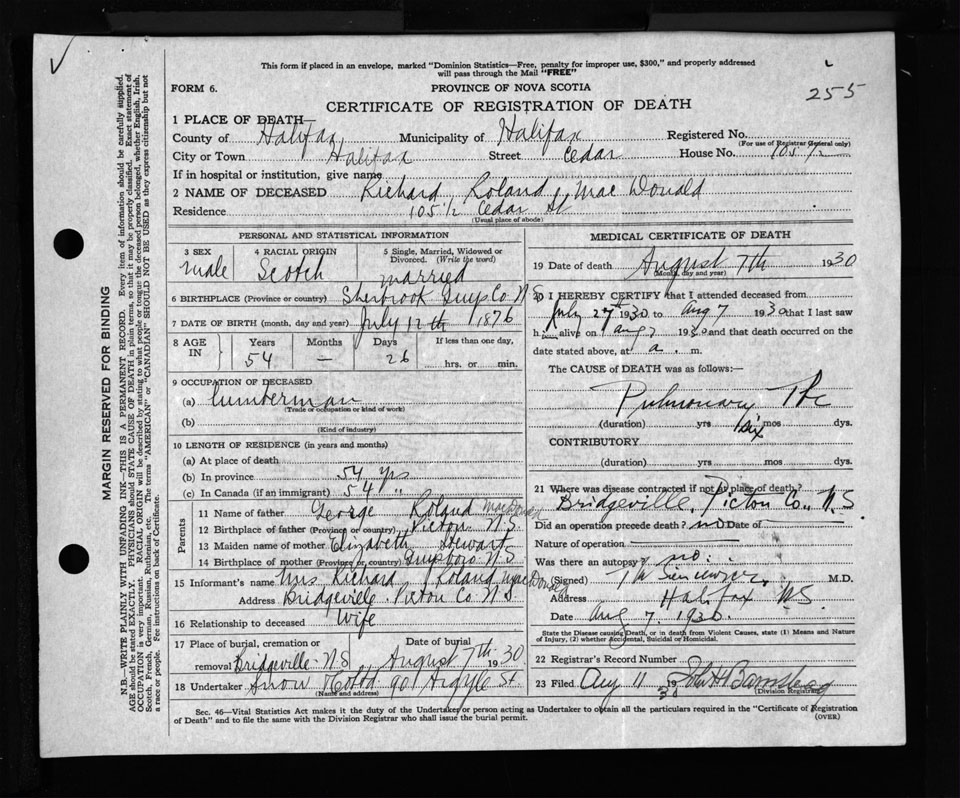 This form if placed in an envelope, marked "Dominion Statistics—Free, penalty for improper use, $300," and properly addressed
will pass through the Mail "FREE"
FORM 6.
PROVINCE OF NOVA SCOTIA
255
CERTIFICATE OF REGISTRATION OF DEATH
1 PLACE OF DEATH
County of Halifax Municipality of Halifax Registered No.
(For use of Registrar General only)
City or Town Halifax Street Cedar House No. 105 1/2
If in hospital or institution, give name
2 NAME OF DECEASED Richard Roland MacDonald
Residence 105 1/2 Cedar St
(Usual place of abode)
PERSONAL AND STATISTICAL INFORMATION
3 SEX male
4 RACIAL ORIGIN Scotch
5 Single, Married, Widowed or Divorced. (Write the word) married
6 BIRTHPLACE (Province or country) Sherbrook Guys Co N S
7 DATE OF BIRTH (month, day and year) July 12th 1876
8 AGE IN Years 54 Months — Days 26 If less than one day, hrs. or min.
9 OCCUPATION OF DECEASED
(a) Lumberman
(Trade or occupation or kind of work)
(b)
(Kind of industry)
10 LENGTH OF RESIDENCE (in years and months)
(a) At place of death
(b) In province 54 yrs
(c) In Canada (if an immigrant) 54 "
Parents
11 Name of father George Roland MacDonald
12 Birthplace of father (Province or country) Picton N.S.
13 Maiden name of mother Elizabeth Stewart
14 Birthplace of mother (Province or country) Guysboro N S
15 Informant's name Mrs Richard Roland MacDonald
Address Bridgeville Picton Co N S
16 Relationship to deceased Wife
17 Place of burial, cremation or removal Bridgeville N S Date of burial August 7th 1930
18 Undertaker Snow & Co Ltd 90 Argyle St.
(Name and address)
MEDICAL CERTIFICATE OF DEATH
19 Date of death August 7th 1930
(Month, day and year)
20 I HEREBY CERTIFY that I attended deceased from
July 27th 1930 to Aug 7 1930 that I last saw
h alive on Aug 7 1930 and that death occurred on
date stated above, at a. m.
The CAUSE OF DEATH was as follows:—
Pulmonary Tbc
(duration) yrs six mos dys.
CONTRIBUTORY
(duration) yrs. mos. dys.
21 Where was disease contracted if not at place of death?
Bridgeville, Picton Co., N.S
Did an operation precede death? no Date of —
Nature of operation —
Was there an autopsy? no.
(Signed) M.D.
Address Halifax N.S.
Date Aug 7. 1930.
State the Disease causing Death, or in death from Violent Causes, state (1) Means and
Nature of Injury, (2) whether Accidental, Suicidal or Homicidal.
22 Registrar's Record Number
23 Filed Aug 11 1930 John H Barnstead
Division Registrar
Sec. 46—Vital Statistics Act makes it the duty of the Undertaker or person acting as Undertaker to obtain all the particulars required in the "Certificate of Registration
of Death" and to file the same with the Division Registrar who shall issue the burial permit.
(OVER)
MARGIN RESERVED FOR BINDING
N.B.—WRITE PLAINLY WITH UNFADING INK—THIS IS A PERMANENT RECORD. Every item of information should be carefully supplied.
AGE should be stated EXACTLY. PHYSICIANS should STATE CAUSE OF DEATH in plain terms, so that it may be properly classified. Exact statement of
OCCUPATION is very important. RACIAL ORIGIN will be described by stating to what people or tongue the deceased person belonged, whether English, Irish,
Scotch, French, German, Russian, Ruthenian, etc. The terms "AMERICAN" or "CANADIAN" SHOULD NOT BE USED as they express citizenship but not
a race or people. Fee instructions on back of Certificate.